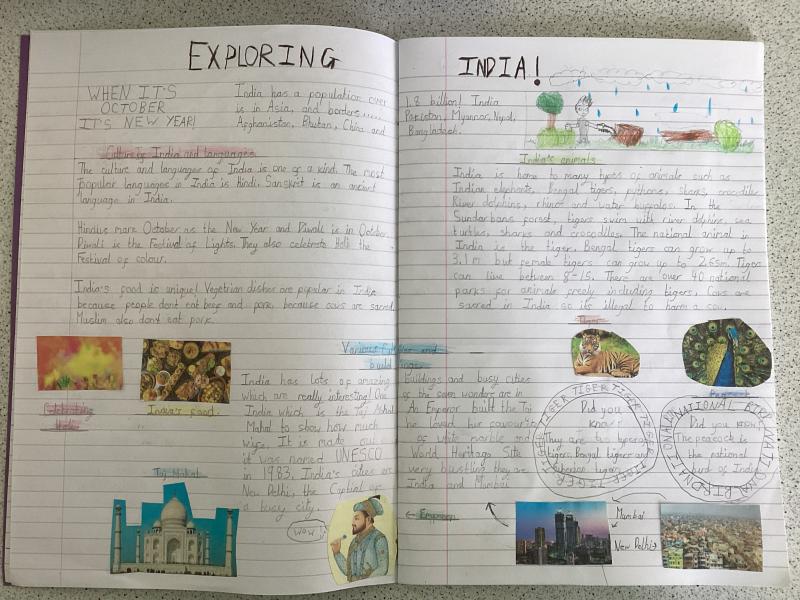 EXPLORING INDIA!
WHEN IT'S
OCTOBER
IT'S NEW YEAR!
India has a population over 1.8 billion! India
is in Asia, and borders..... Pakistan, Myannar, Nepal,
Afghanistan, Bhutan, China and Bangladesh.
Culture of India and languages
The culture and languages of India is one of a kind. The most
popular languages in India is Hindi. Sanskrit is an ancient
language in India.
Hindus mark October as the New Year and Diwali is in October.
Diwali is the Festival of Lights. They also celebrate Holi the
Festival of colour.
India's food is unique! Vegetrian dishes are popular in India
because people don't eat beef and pork, because cows are sacred.
Muslim also dont eat pork.
Celebrating
Holi
India's food
Taj Mahal
Various and
buildings
India has lots of amazing Buildings and busy cities
which are really interesting! One of the seven wonders are in
India which is the Taj Mahal An Emperor built the Taj
Mahal to show how much he loved his favourite
wife. It is made out of white marble and
it was named UNESCO World Heritage Site
in 1983. India's cities are very bustling they are
New Delhi, the Capital of India and Mumbai
a busy city.
WOW!
← Emperor
India's animals
India is home to many types of animals such as
Indian elephants, Bengal tigers, pythons, sharks, crocodiles
River dolphins, rhino and water buffalos. In the
Sundarbans forest, tigers swim with river dolphins, sea
turtles, sharks and crocodiles. The national animal in
India is the tiger. Bengal tigers can grow up to
3.1m but female tigers can grow up to 2.65m. Tigers
can live between 8-15. There are over 40 national
parks for animals freely including tigers. Cows are
sacred in India so its illegal to harm a cow.
Tiger
Peacock
TIGER TIGER TIGER TIGER
Did you
know?
They are two types of
tigers, Bengal tigers and
Siberian tigers
NATIONAL BIRD
Did you know?
The peacock is
the national
bird of India
Mumbai
New Delhi→